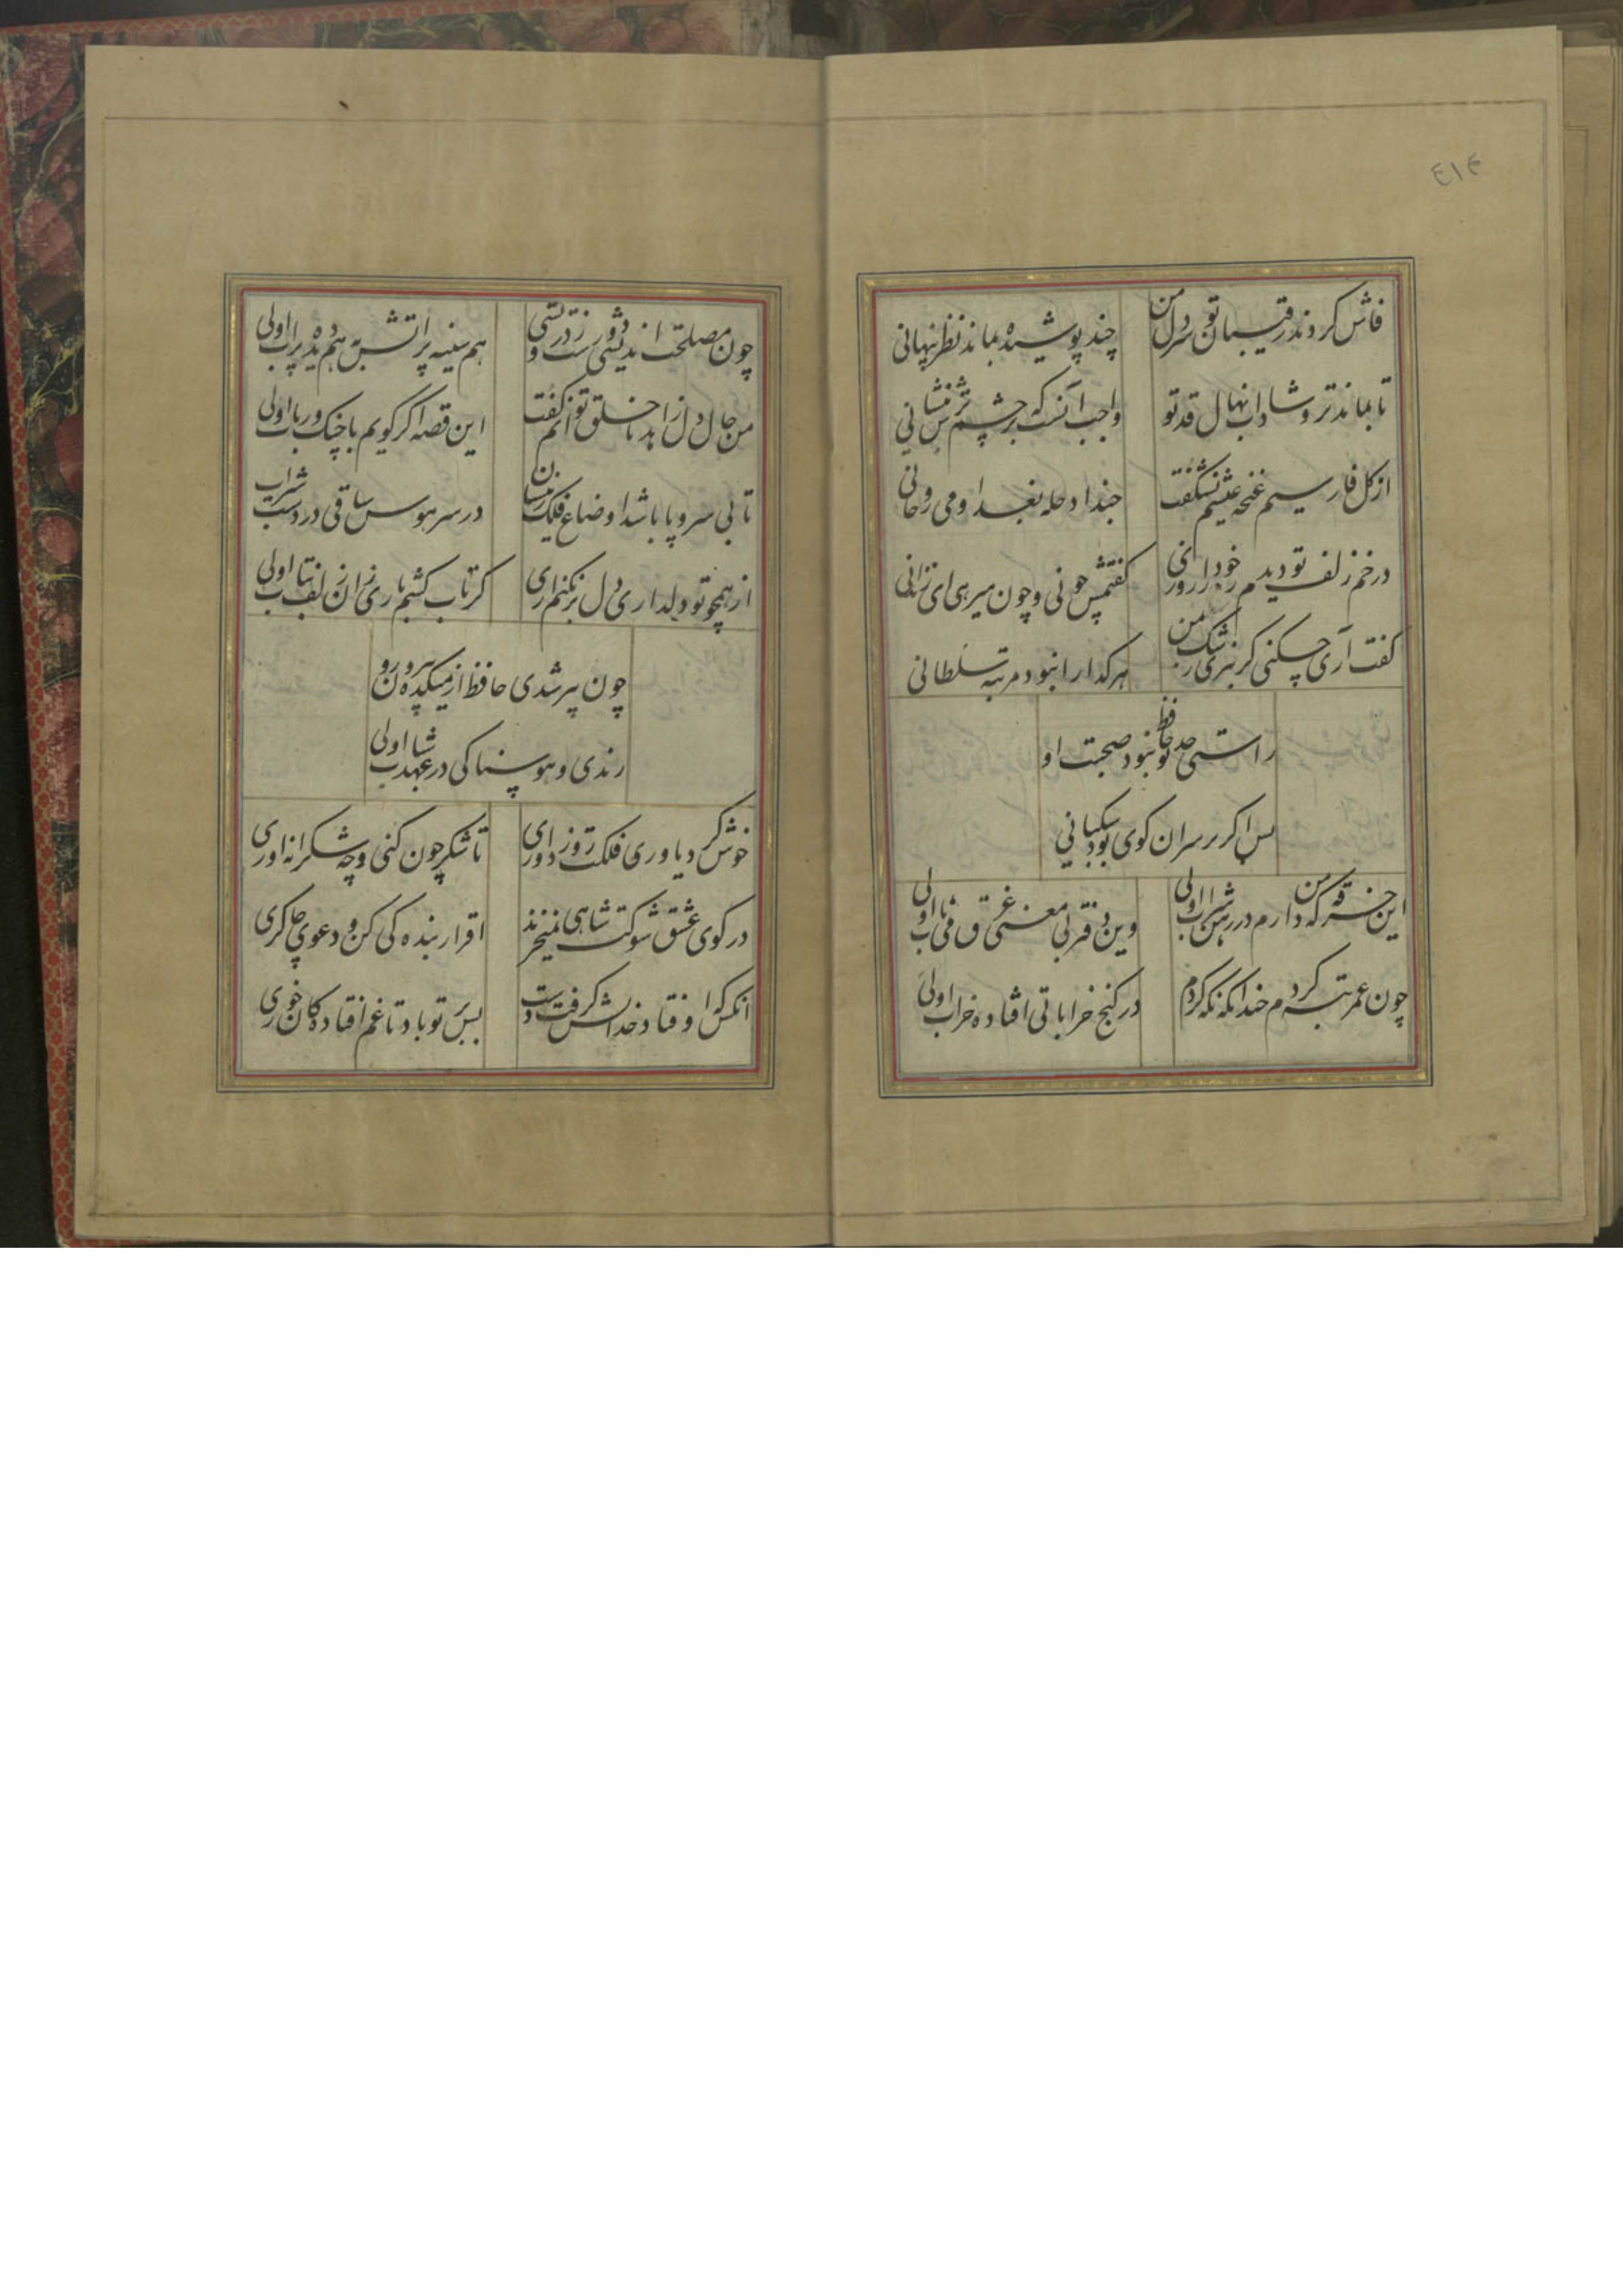 ۴۱۴
فاش کردند رقیبان تو سر دل من چند پوشیده بماند نظر پنهانی
تا بماند تر و شاداب نهال قد تو واجب آنست که بر چشم ترش بنشانی
از کل فارسیم غنچه عیشم نشکفت حبذا دجله بغداد و می روحانی
در خم زلف تو دیدم خود را روزی کفتمش چونی و چون میرهی ای زندانی
کفت آری چکنی کر نبری رشک من هر کدا را نبود مرتبه سلطانی
راستی حد تو حافظ نبود صحبت او
بس اکر بر سر ان کوی بود سکبانی
این خرقه که من دارم در رهن شراب اولی وین دفتر بی معنی غرق می ناب اولی
چون عمر تبه کردم چندانکه نکه کردم در کنج خراباتی افتاده خراب اولی
چون مصلحت اندیشی دورست ز درویشی هم سینه پر اتش به هم دیده پر اب اولی
من حال دل زاهد با خلق نتوانم کفت این قصه اکر کویم با چنک و رباب اولی
تا بی سر و پا باشد اوضاع فلک زینسان در سر هوس ساقی در دست شراب
از همچو تو دلداری دل بر نکنم اری کر تاب کشم باری زان زلف بتاب اولی
چون پیر شدی حافظ از میکده بیرون رو
رندی و هوسناکی در عهد شباب اولی
خوش کرد یاوری فلکت روز داوری تا شکر چون کنی و چه شکرانه اوری
در کوی عشق شوکت شاهی نمیخرند اقرار بنده کی کن و دعوی چاکری
انکس که اوفتاد خدایش کرفت دست بس بر تو باد تا غم افتاده کان خوری